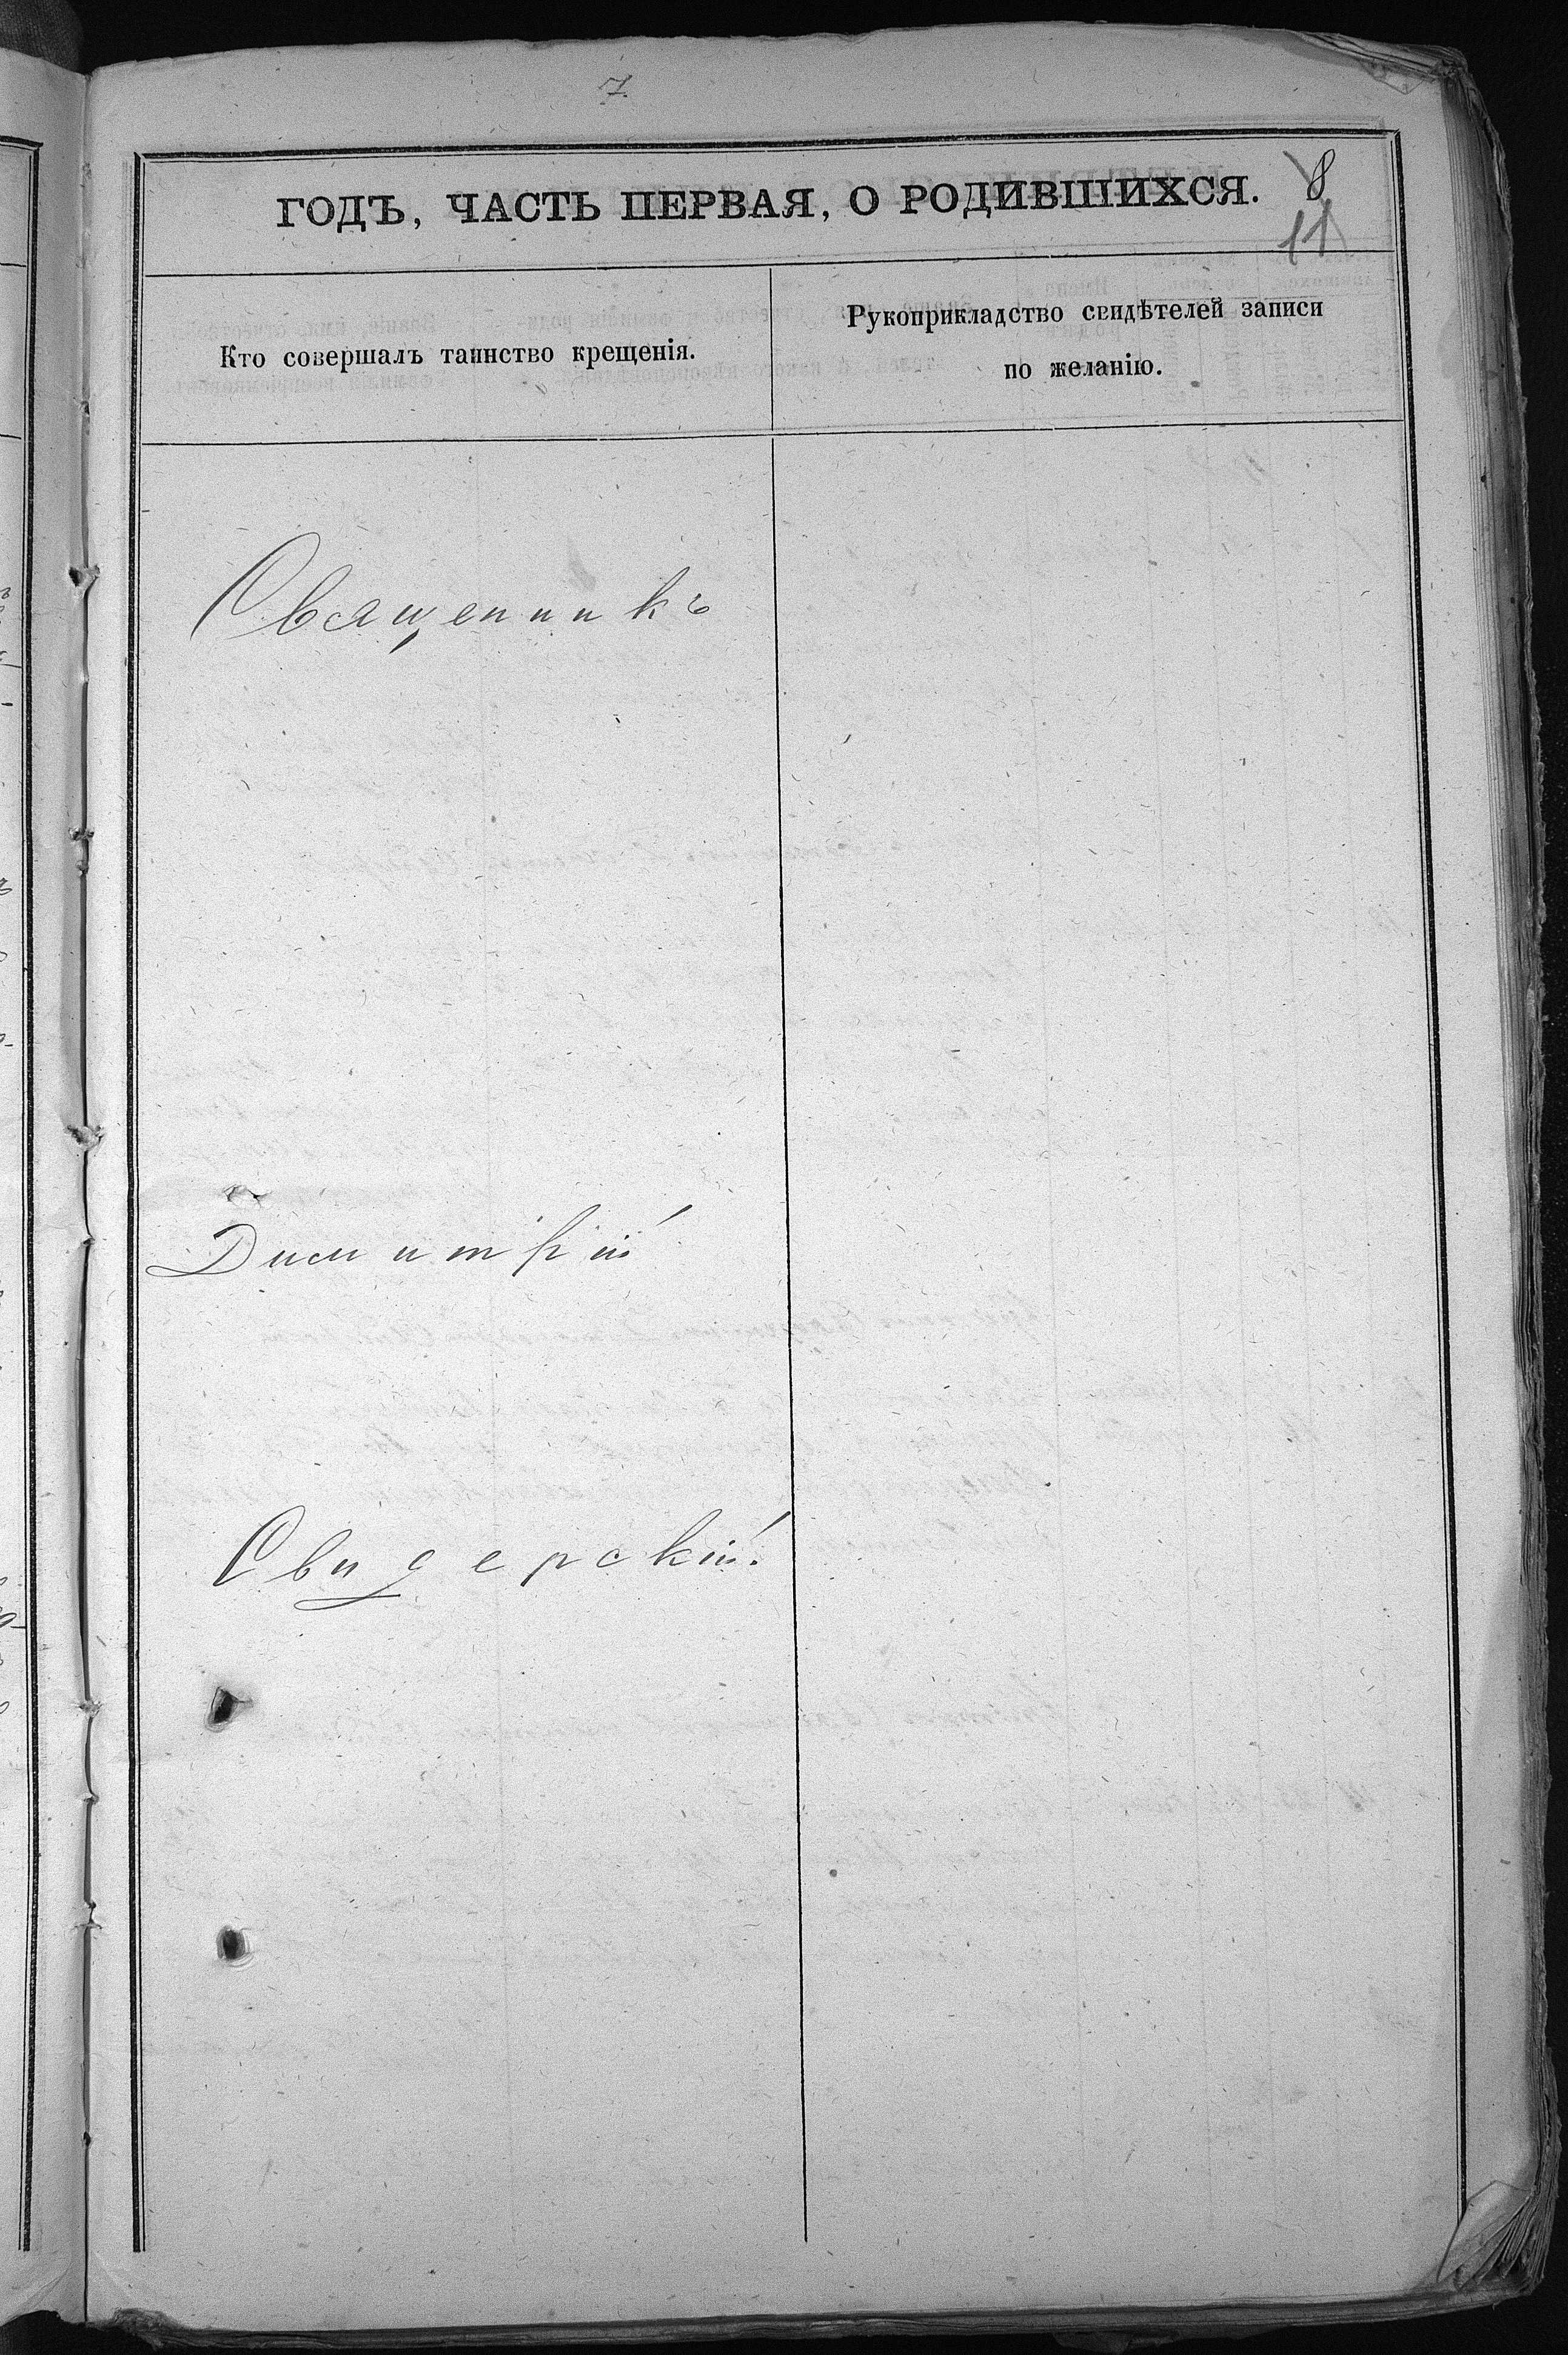 7.
ГОДЪ, ЧАСТЬ ПЕРВАЯ, О РОДИВШИХСЯ.
8
11
Кто совершалъ таинство крещенія.
Рукоприкладство свидѣтелей записи
по желанію.
Священникъ
Димитрій
Свидерскій.